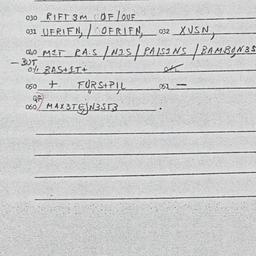 030 RIFT3M OF/OUF
031 UFRIFN, / OFRIFN, 032 XUSN,
040 MIT RAS / NIS / PAISINS / BAMBON3S
— BUT
041 BAS+IT+
050 + FURS+PIL 051 —
OF
060 MAX3TEJN3ST3 .